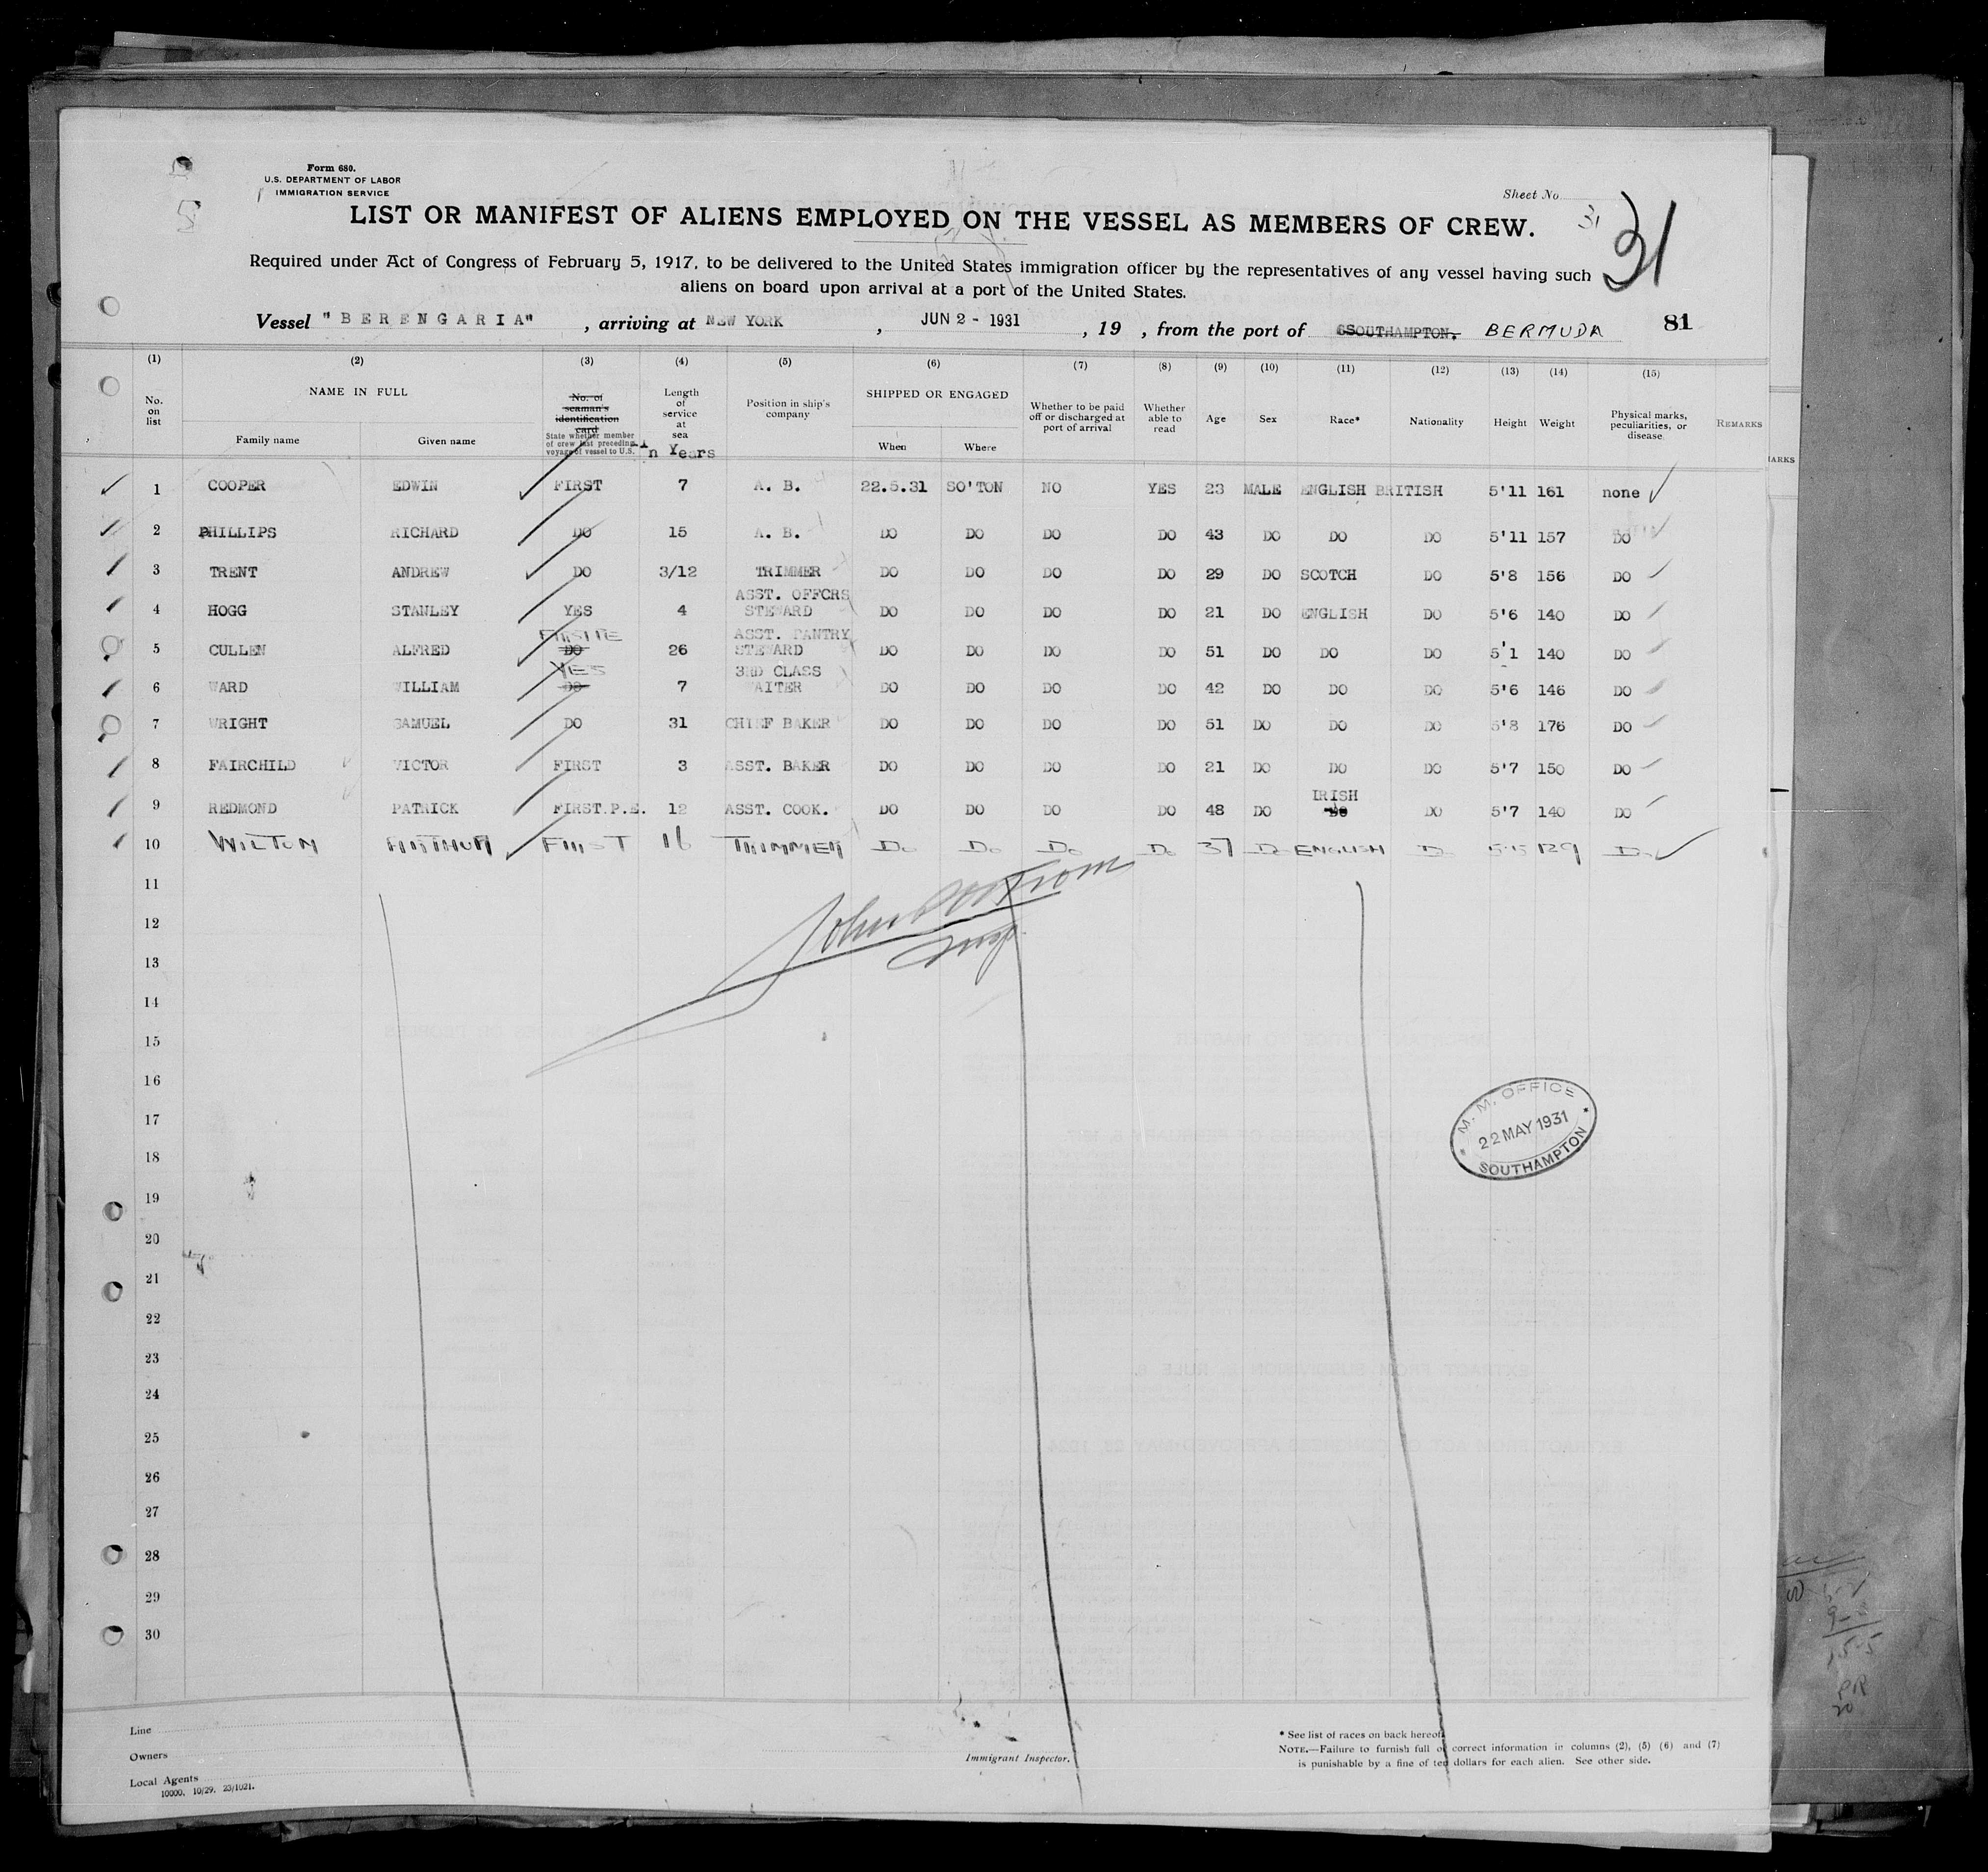 Form 680.
U.S. DEPARTMENT OF LABOR
IMMIGRATION SERVICE
Sheet No
31
31
LIST OR MANIFEST OF ALIENS EMPLOYED ON THE VESSEL AS MEMBERS OF CREW.
Required under Act of Congress of February 5, 1917, to be delivered to the United States immigration officer by the representatives of any vessel having such
aliens on board upon arrival at a port of the United States.
Vessel "BERENGARIA", arriving at NEW YORK, JUN 2 - 1931, 19 , from the port of SSOUTHAMPTON. BERMUDA 81
(1) (2) (3) (4) (5) (6) (7) (8) (9) (10) (11) (12) (13) (14) (15)
No. on list
NAME IN FULL
Family name Given name
No. of seaman's identification card
State whether member of crew last preceding voyage of vessel to U.S.
Length of service at sea
In Years
Position in ship's company
SHIPPED OR ENGAGED
When Where
Whether to be paid off or discharged at port of arrival
Whether able to read
Age Sex Race* Nationality Height Weight
Physical marks, peculiarities, or disease
REMARKS
ARKS
1 COOPER EDWIN FIRST 7 A. B. 22.5.31 SO'TON NO YES 23 MALE ENGLISH BRITISH 5'11 161 none
2 PHILLIPS RICHARD DO 15 A. B. DO DO DO DO 43 DO DO DO 5'11 157 DO
3 TRENT ANDREW DO 3/12 TRIMMER DO DO DO DO 29 DO SCOTCH DO 5'8 156 DO
4 HOGG STANLEY YES 4 ASST. OFFCRS STEWARD DO DO DO DO 21 DO ENGLISH DO 5'6 140 DO
5 CULLEN ALFRED DO 26 ASST. PANTRY STEWARD DO DO DO DO 51 DO DO DO 5'1 140 DO
6 WARD WILLIAM YES DO 7 3RD CLASS WAITER DO DO DO DO 42 DO DO DO 5'6 146 DO
7 WRIGHT SAMUEL DO 31 CHIEF BAKER DO DO DO DO 51 DO DO DO 5'8 176 DO
8 FAIRCHILD VICTOR FIRST 3 ASST. BAKER DO DO DO DO 21 DO DO DO 5'7 150 DO
9 REDMOND PATRICK FIRST.P.E. 12 ASST. COOK. DO DO DO DO 48 DO IRISH DO DO 5'7 140 DO
10 WILTON ARTHUR FIRST 16 TRIMMER Do Do Do Do 37 Do ENGLISH Do 5'5 129 Do
11
12
13
14
15
16
17
18
19
20
21
22
23
24
25
26
27
28
29
30
M. M. OFFICE
22 MAY 1931
SOUTHAMPTON
Line
Owners
Local Agents
10000, 10/29, 23/1021.
Immigrant Inspector.
* See list of races on back hereof.
NOTE.—Failure to furnish full or correct information in columns (2), (5) (6) and (7)
is punishable by a fine of ten dollars for each alien. See other side.